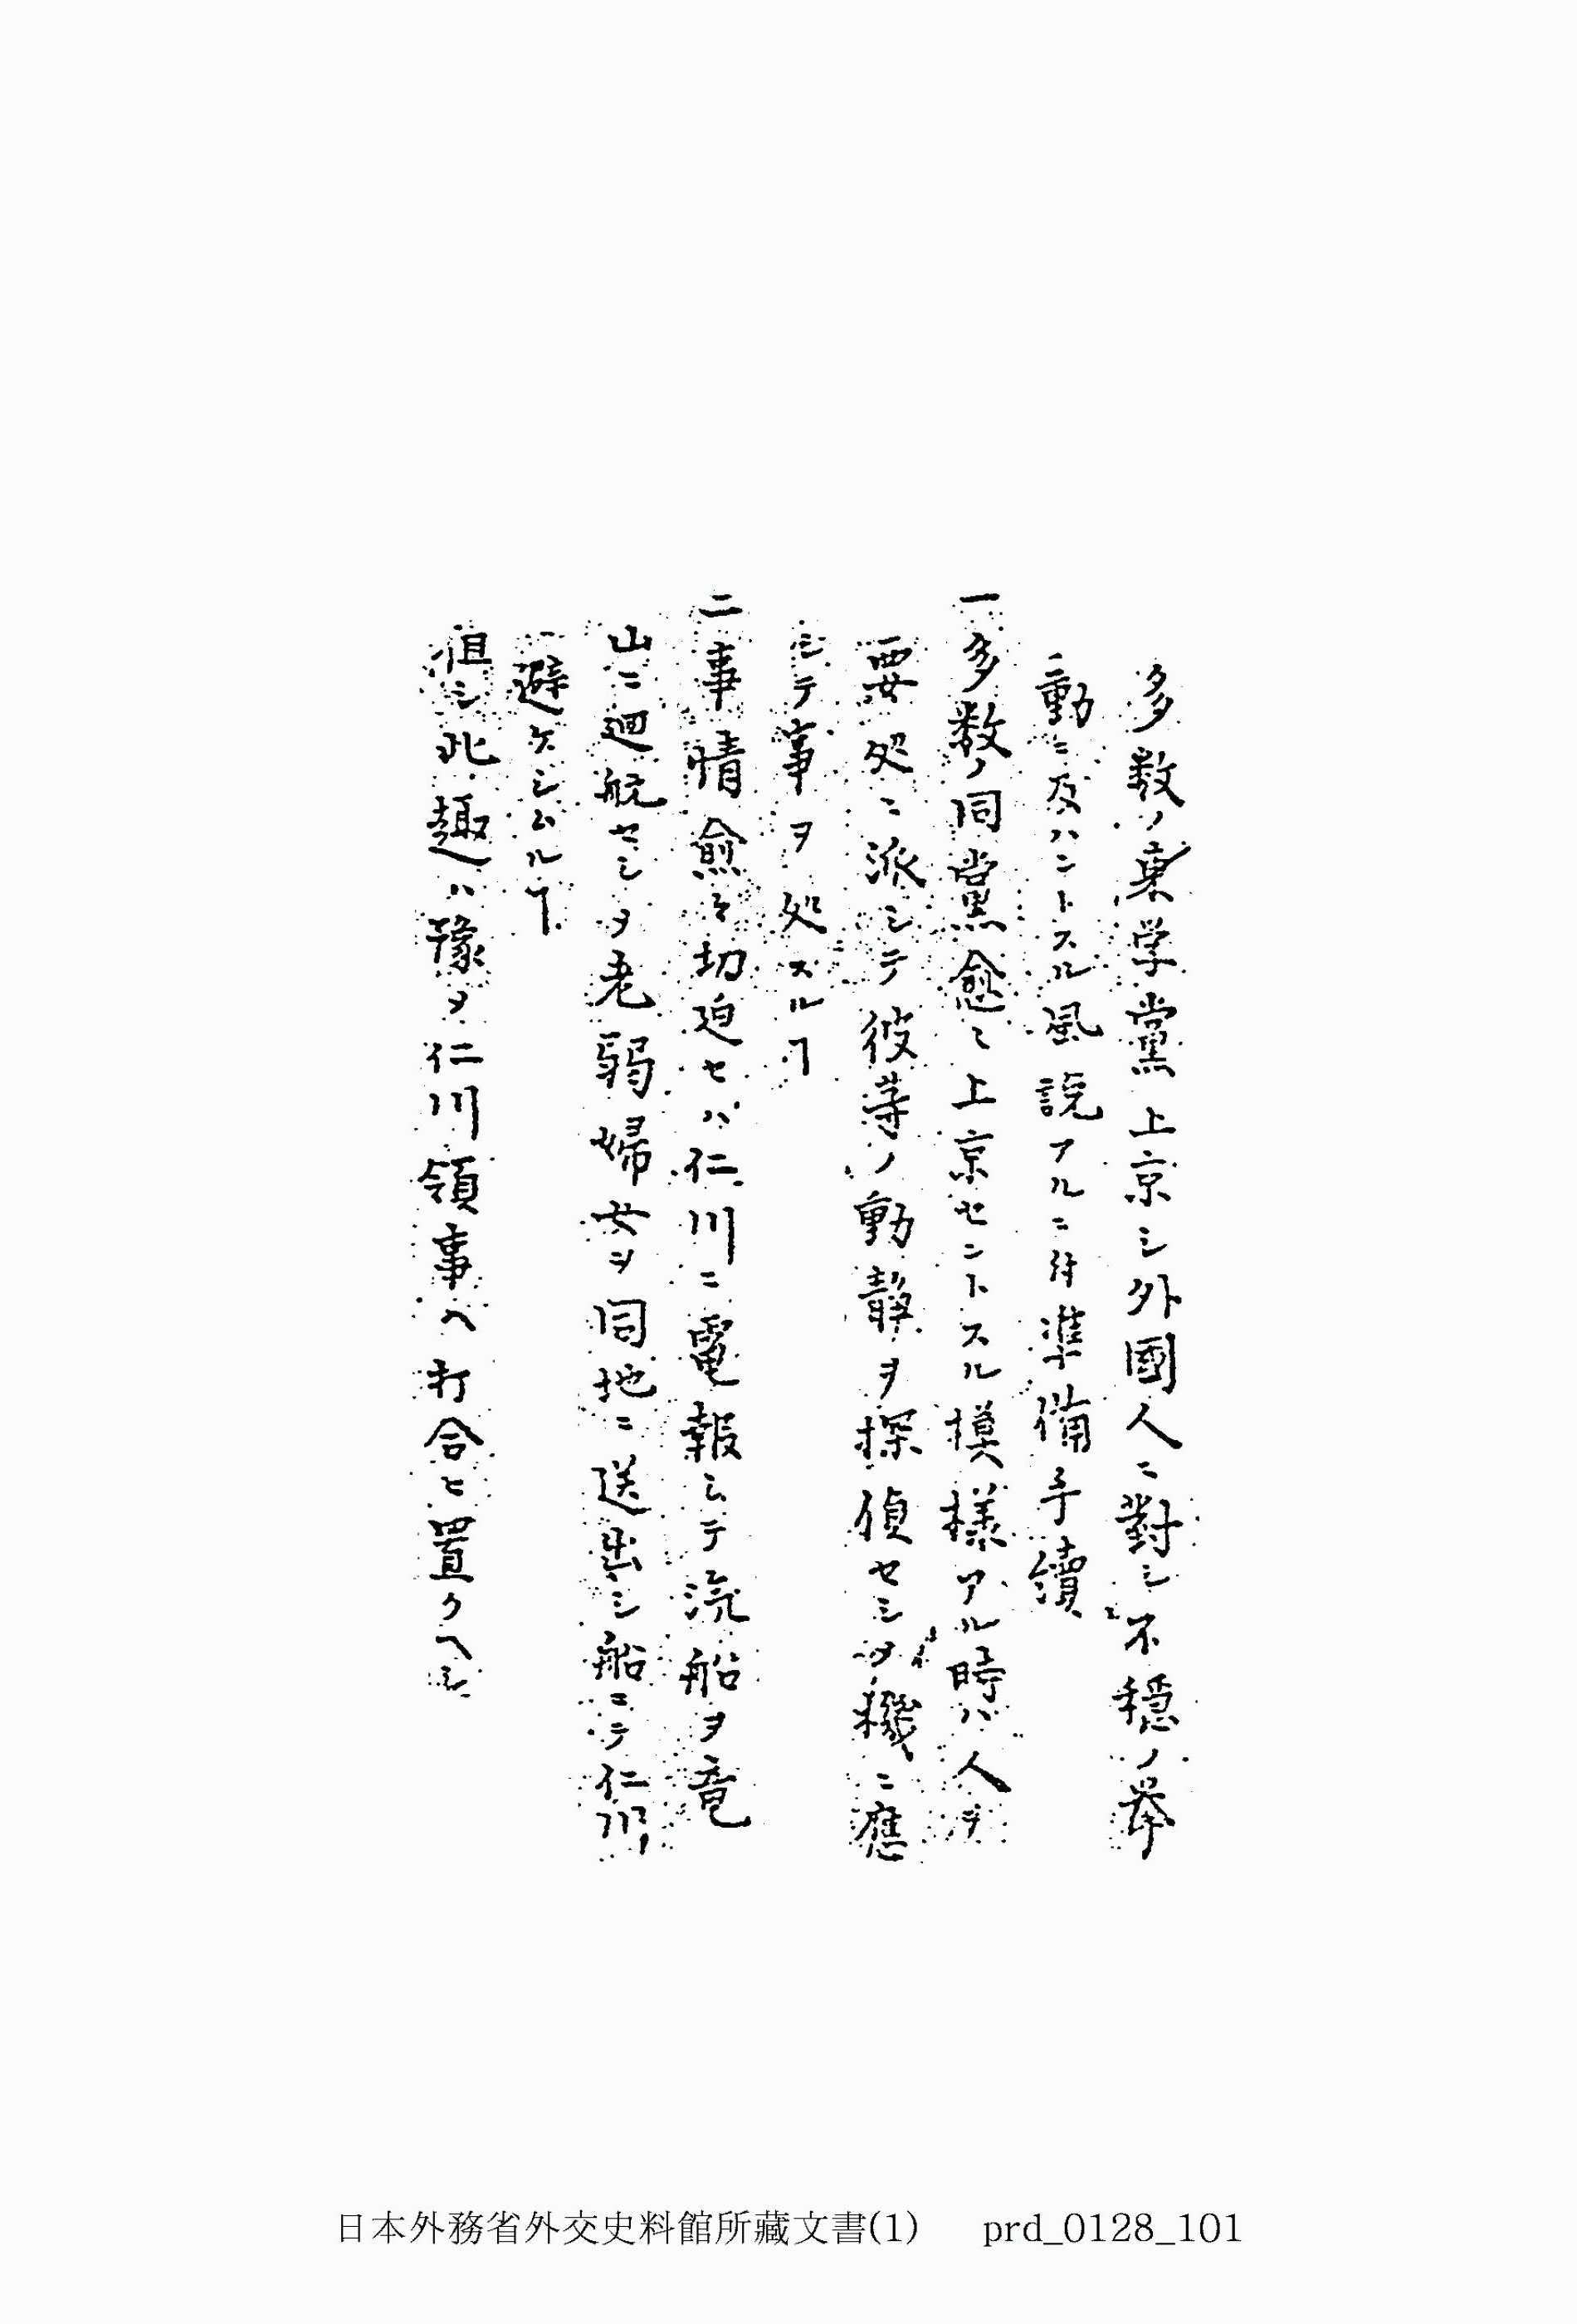 多数ノ東学黨上京シ外國人ニ對シ不穏ノ擧
動ニ及ハントスル風説アルニ付準備手續
一多数ノ同黨愈々上京セントスル摸様アル時ハ人ヲ
要処ニ派シテ彼等ノ動静ヲ探偵セシメ機ニ應
シテ事ヲ処スルヿ
二事情愈々切迫セハ仁川ニ電報シテ汽船ヲ竜
山ニ廻航セシメ老弱婦女ヲ同地ニ送出シ船ニテ仁川
ニ避ケシムルヿ
但シ此趣ハ豫メ仁川領事ヘ打合ヒ置クヘシ
日本外務省外交史料館所藏文書(1) prd_0128_101